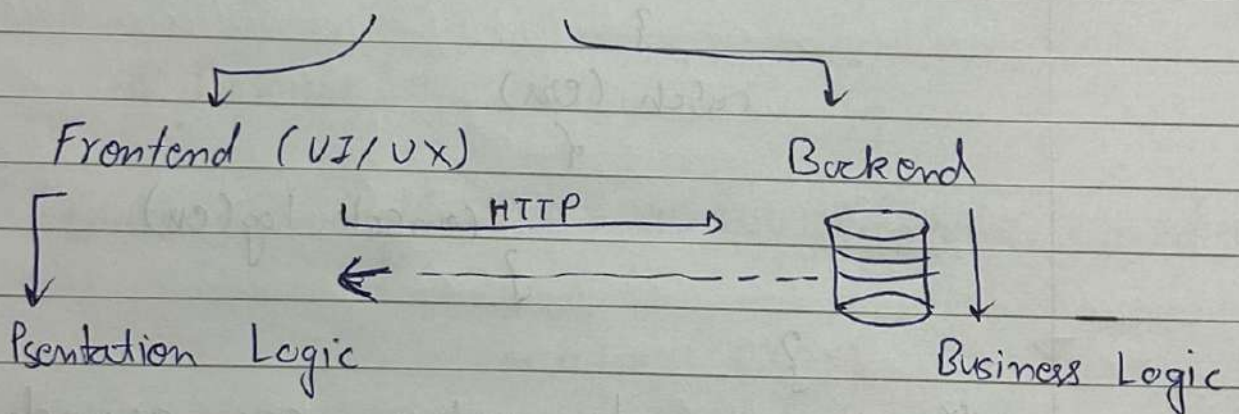 Frontend (UI/UX)
Backend
HTTP
Psentation Logic
Business Logic